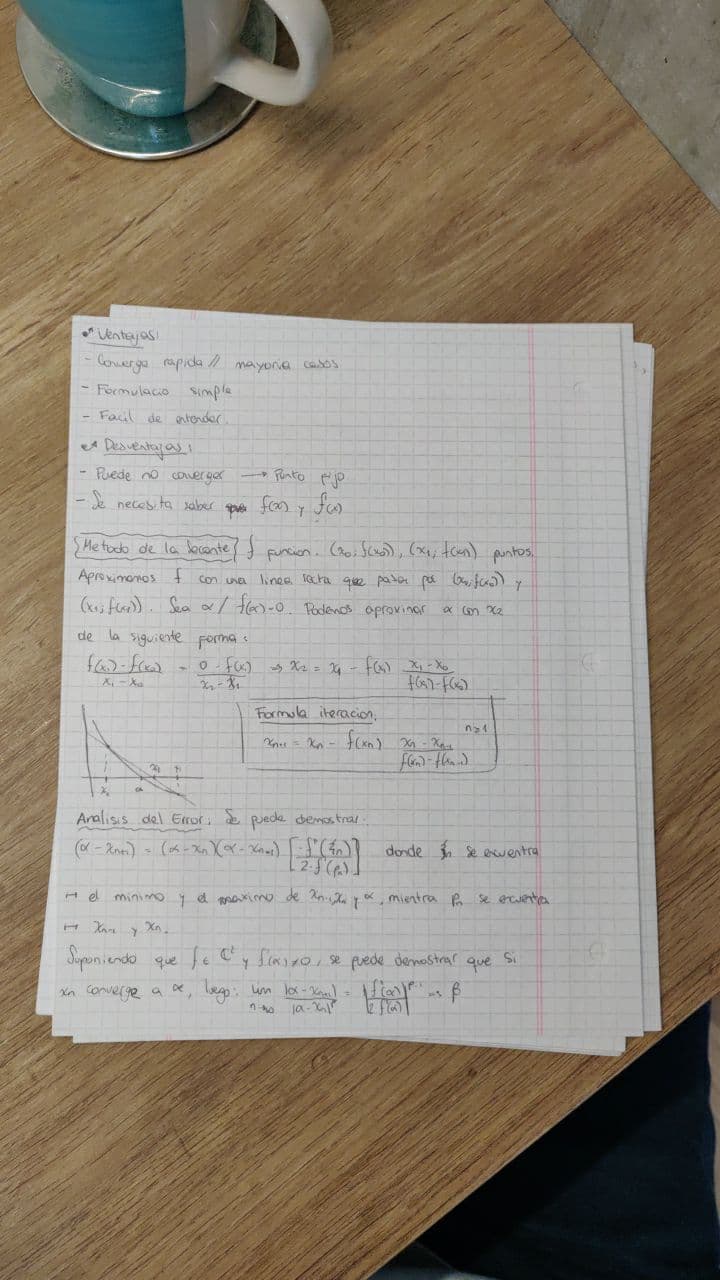 Ventajas:
- Converge rapida// mayoria casos
- Formulacio simple
- Facil de entender.
Desventajas:
- Puede no converger → Punto fijo
- Se necesita saber f(x) y f'(x)
Metodo de la Secante f funcion. (x₀, f(x₀)), (x₁, f(x₁)) puntos.
Aproximamos f con una linea recta que pasa por (x₀, f(x₀)) y
(x₁, f(x₁)). Sea α / f(α)=0. Podemos aproximar α con x₂
de la siguiente forma:
(f(x₁) - f(x₀)) / (x₁ - x₀) = (0 - f(x₁)) / (x₂ - x₁) ⇒ x₂ = x₁ - f(x₁) (x₁ - x₀) / (f(x₁) - f(x₀))
Formula iteracion.
xₙ₊₁ = xₙ - f(xₙ) (xₙ - xₙ₋₁) / (f(xₙ) - f(xₙ₋₁)) n≥1
Analisis del Error: Se puede demostrar:
(α - xₙ₊₁) = (α - xₙ)(α - xₙ₋₁) [-f''(ξₙ) / 2·f'(ρₙ)] donde ξₙ se encuentra
↦ el minimo y el maximo de xₙ₋₁, xₙ y α, mientra ρₙ se encuentra
↦ xₙ₋₁ y xₙ.
Suponiendo que f ∈ C² y f'(α) ≠ 0, se puede demostrar que si
xₙ converge a α, luego: lim n→∞ |α - xₙ₊₁| / |α - xₙ|ᵖ = |f''(α) / 2 f'(α)|ᵖ⁻¹ = β